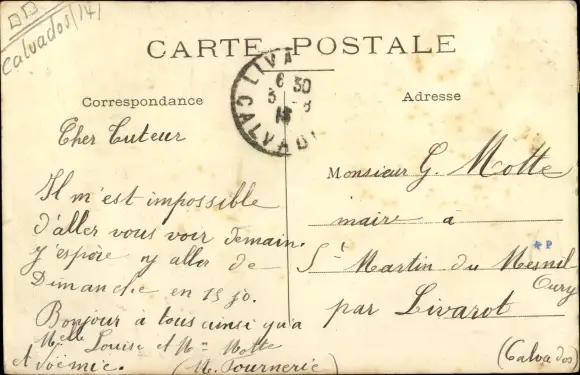 Calvados (14)
CARTE POSTALE
LIVA
6 30
3 - 8
CALVADOS
Correspondance
Adresse
Cher Tuteur
Il m'est impossible
d'aller vous voir demain.
J'espère y aller de
Dimanche en 15 jo.
Bonjour à tous ainsi qu'à
Melle Louise et Me Motte
et Noëmie. (M. Tournerie)
Monsieur G. Motte
maire à
St Martin du Mesnil
Oury
par Livarot
(Calvados)